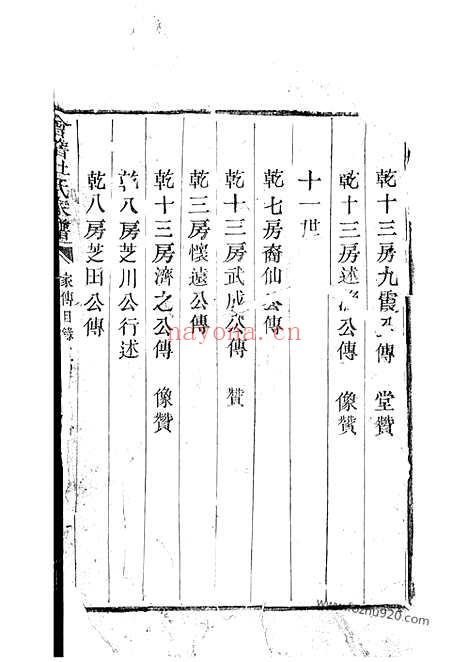 乾十三房九霞公傳 堂贊
乾十三房述 公傳 像贊
十一世
乾七房裔仙公傳
乾十三房武成公傳 贊
乾三房懷遠公傳
乾十三房濟之公傳 像贊
乾八房芝川公行述
乾八房芝田公傳
會稽杜氏家譜 家傳目錄
nayona.cn
www.fozhu920.com